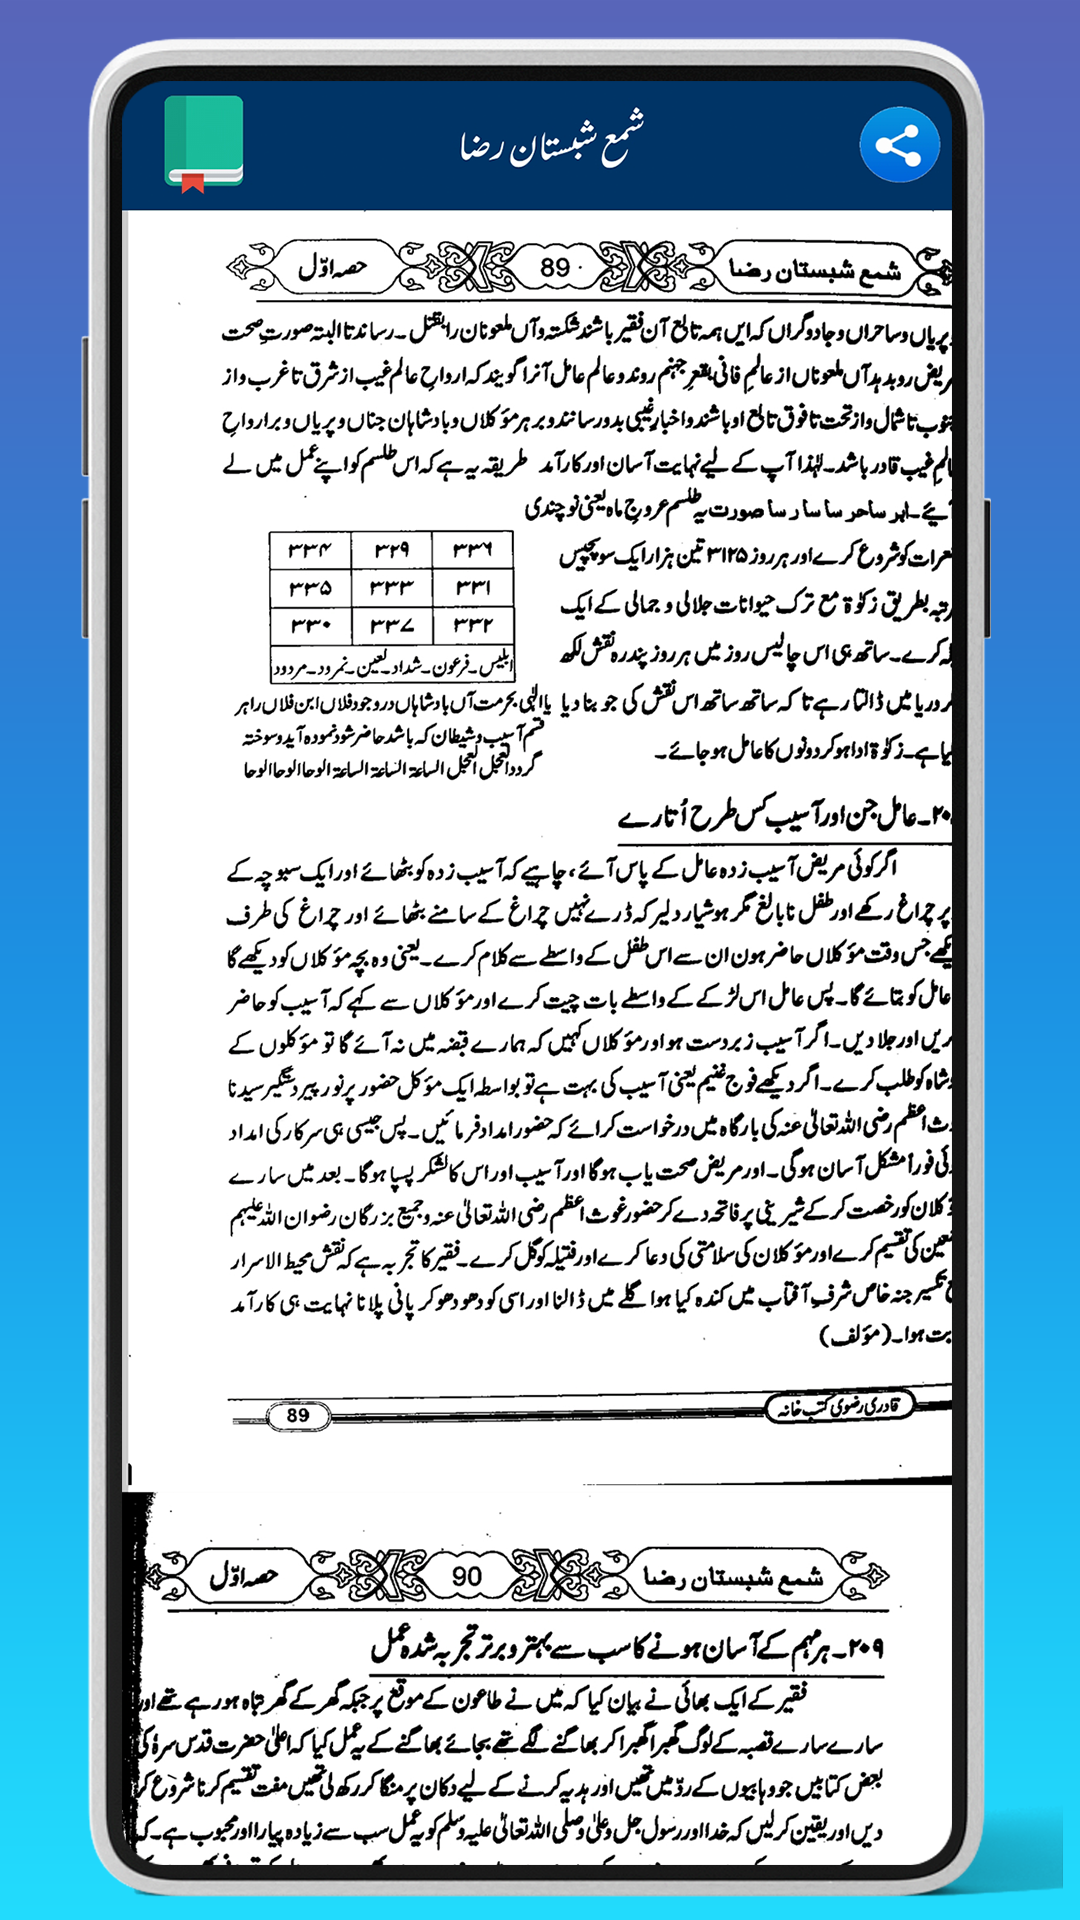 شمع شبستان رضا
شمع شبستان رضا
89
حصہ اوّل
پریاں وساحراں وجادوگراں کہ ایں ہمہ تابع آن فقیر باشند شکستہ وآں ملعونان را بقتل ۔ رساند تا البتہ صورتِ صحت
روبدہد آں ملعوناں از عالمِ فانی بقعرِ جہنم روند وعالم عامل آنرا گویند کہ ارواحِ عالم غیب از شرق تا غرب واز
تا شمال واز تحت تا فوق تابع او باشند واخبارِ غیبی بدو رسانند و بر ہر مؤکلاں وبادشاہان جناں و پریاں و بر ارواحِ
غیب قادر باشد۔ لہٰذا آپ کے لیے نہایت آسان اور کارآمد طریقہ یہ ہے کہ اس طلسم کو اپنے عمل میں لے
آیئے۔ اہر ساحر سا سا ر سا صورت یہ طلسم عروجِ ماہ یعنی نوچندی
کو شروع کرے اور ہر روز ۳۱۲۵ تین ہزار ایک سو پچیس
بطریق زکوٰۃ مع ترک حیوانات جلالی و جمالی کے ایک
کرے۔ ساتھ ہی اس چالیس روز میں ہر روز پندرہ نقش لکھ
دریا میں ڈالتا رہے تا کہ ساتھ ساتھ اس نقش کی جو بنا دیا
ہے۔ زکوٰۃ ادا ہو کر دونوں کا عامل ہو جائے۔
۳۳۶ ۳۲۹ ۳۳۴
۳۳۱ ۳۳۳ ۳۳۵
۳۳۲ ۳۳۷ ۳۳۰
ابلیس۔ فرعون۔ شداد۔ لعین۔ نمرود۔ مردود
یا الٰہی بحرمت آں بادشاہاں در وجود فلاں ابن فلاں را ہر
قسم آسیب و شیطان کہ باشد حاضر شود نمودہ آید و سوختہ
گردد العجل العجل الساعۃ الساعۃ الساعۃ الوحا الوحا الوحا
عامل جن اور آسیب کس طرح اُتارے
اگر کوئی مریض آسیب زدہ عامل کے پاس آئے، چاہیے کہ آسیب زدہ کو بٹھائے اور ایک سبوچہ کے
پر چراغ رکھے اور طفل نابالغ مگر ہوشیار دلیر کہ ڈرے نہیں چراغ کے سامنے بٹھائے اور چراغ کی طرف
جس وقت مؤکلاں حاضر ہون ان سے اس طفل کے واسطے سے کلام کرے۔ یعنی وہ بچہ مؤکلاں کو دیکھے گا
عامل کو بتائے گا۔ پس عامل اس لڑکے کے واسطے بات چیت کرے اور مؤکلاں سے کہے کہ آسیب کو حاضر
اور جلا دیں۔ اگر آسیب زبردست ہو اور مؤکلاں کہیں کہ ہمارے قبضہ میں نہ آئے گا تو مؤکلوں کے
کو طلب کرے۔ اگر دیکھے فوج غنیم یعنی آسیب کی بہت ہے تو بواسطہ ایک مؤکل حضور پرنور پیر دستگیر سیدنا
اعظم رضی اللہ تعالیٰ عنہ کی بارگاہ میں درخواست کرائے کہ حضور امداد فرمائیں۔ پس جیسی ہی سرکار کی امداد
فوراً مشکل آسان ہوگی۔ اور مریض صحت یاب ہوگا اور آسیب اور اس کا لشکر پسپا ہوگا۔ بعد میں سارے
کو رخصت کر کے شیرینی پر فاتحہ دے کر حضور غوث اعظم رضی اللہ تعالیٰ عنہ و جمیع بزرگان رضوان اللہ علیہم
کی تقسیم کرے اور مؤکلان کی سلامتی کی دعا کرے اور فتیلہ کو گل کرے۔ فقیر کا تجربہ ہے کہ نقش محیط الاسرار
خاص شرفِ آفتاب میں کندہ کیا ہوا گلے میں ڈالنا اور اسی کو دھو دھو کر پانی پلانا نہایت ہی کارآمد
ہوا۔ (مؤلف)
قادری رضوی کتب خانہ
89
شمع شبستان رضا
90
حصہ اوّل
۲۰۹۔ ہر مہم کے آسان ہونے کا سب سے بہتر و برتر تجربہ شدہ عمل
فقیر کے ایک بھائی نے بیان کیا کہ میں نے طاعون کے موقع پر جبکہ گھر کے گھر تباہ ہو رہے تھے اور
سارے سارے قصبہ کے لوگ گھبرا گھبرا کر بھاگنے لگے تھے بجائے بھاگنے کے یہ عمل کیا کہ اعلیٰ حضرت قدس سرہٗ کی
بعض کتابیں جو وہابیوں کے ردّ میں تھیں اور ہدیہ کرنے کے لیے دکان پر منگا کر رکھ لی تھیں مفت تقسیم کرنا شروع کر
دیں اور یقین کرلیں کہ خدا اور رسول جل وعلیٰ وصلی اللہ تعالیٰ علیہ وسلم کو یہ عمل سب سے زیادہ پیارا اور محبوب ہے۔